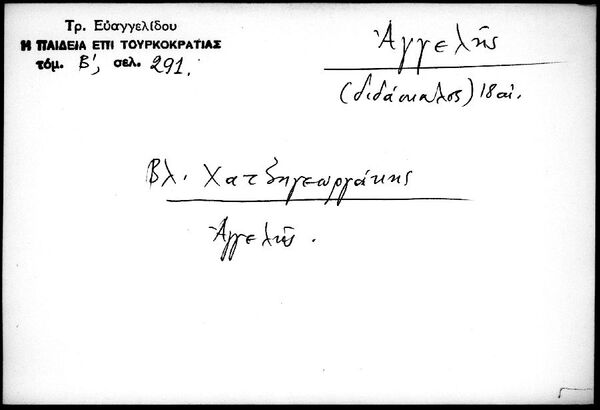 Τρ. Εὐαγγελίδου
Η ΠΑΙΔΕΙΑ ΕΠΙ ΤΟΥΡΚΟΚΡΑΤΙΑΣ
τόμ. Β', σελ. 291.
Ἀγγελῆς
(διδάσκαλος) 18 αἰ.
Βλ. Χατζηγεωργάκης
Ἀγγελῆς.